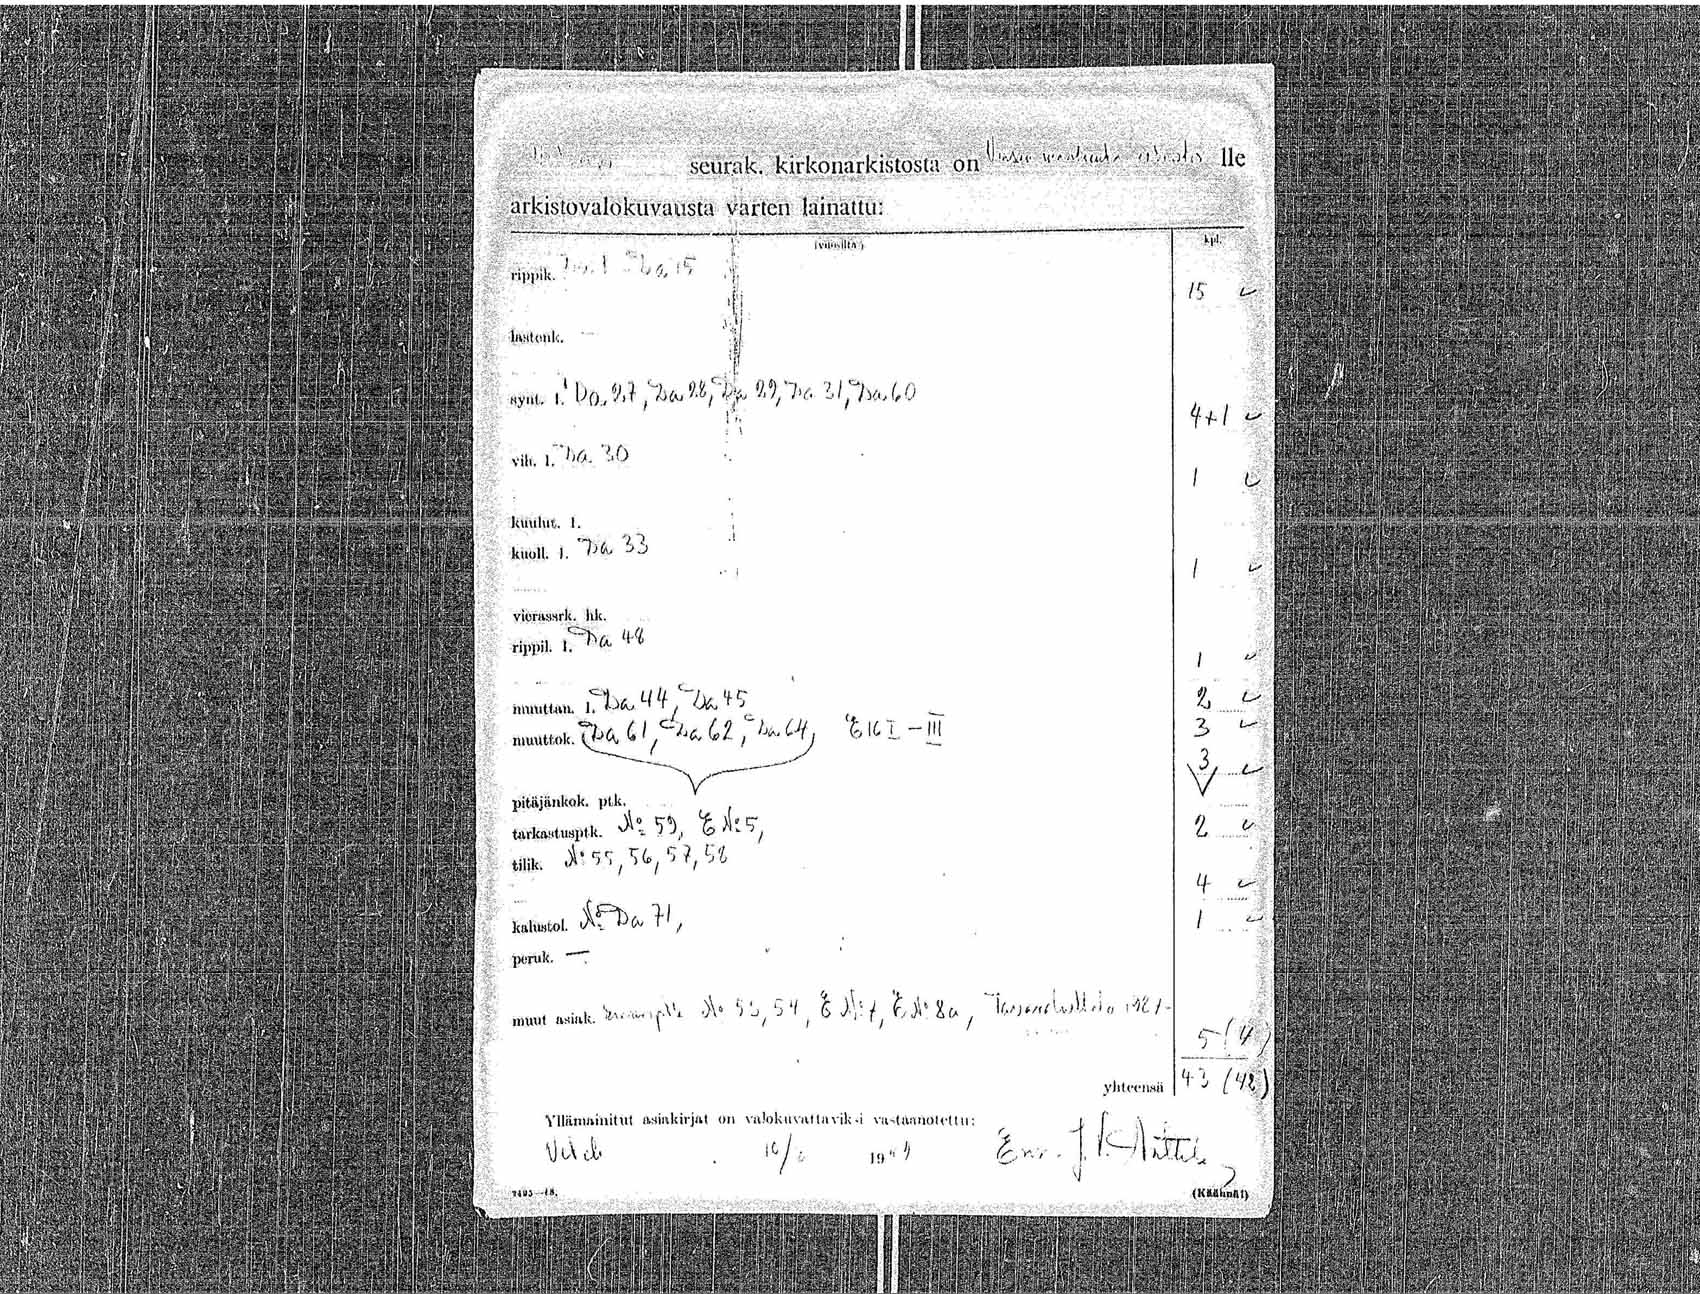 seurak. kirkonarkistosta on lle
arkistovalokuvausta varten lainattu:
(vuosilta) kpl.
rippik. Da 1 Da 15
15 ✓
lastenk. —
synt. l. Da 27, Da 28, Da 29, Da 31, Da 60
4+1 ✓
vih. l. Da. 30
1 ✓
kuulut. l.
kuoll. l. Da 33
1 ✓
vierassrk. hk.
rippil. l. Da 48
1 ✓
muuttan. l. Da 44, Da 45 2 ✓
muuttok. Da 61, Da 62, Da 64, E 16 I – III 3 ✓
3 ✓
pitäjänkok. ptk.
tarkastusptk. No 59, E No 5, 2 ✓
tilik. No 55, 56, 57, 58
4 ✓
kalustol. No Da 71, 1 ✓
peruk. —
muut asiak. No 53, 54, E No 7, E No 8a,
5 (4)
yhteensä 43 (42)
Yllämainitut asiakirjat on valokuvattaviksi vastaanotettu:
19
7495—48. (Käännä!)